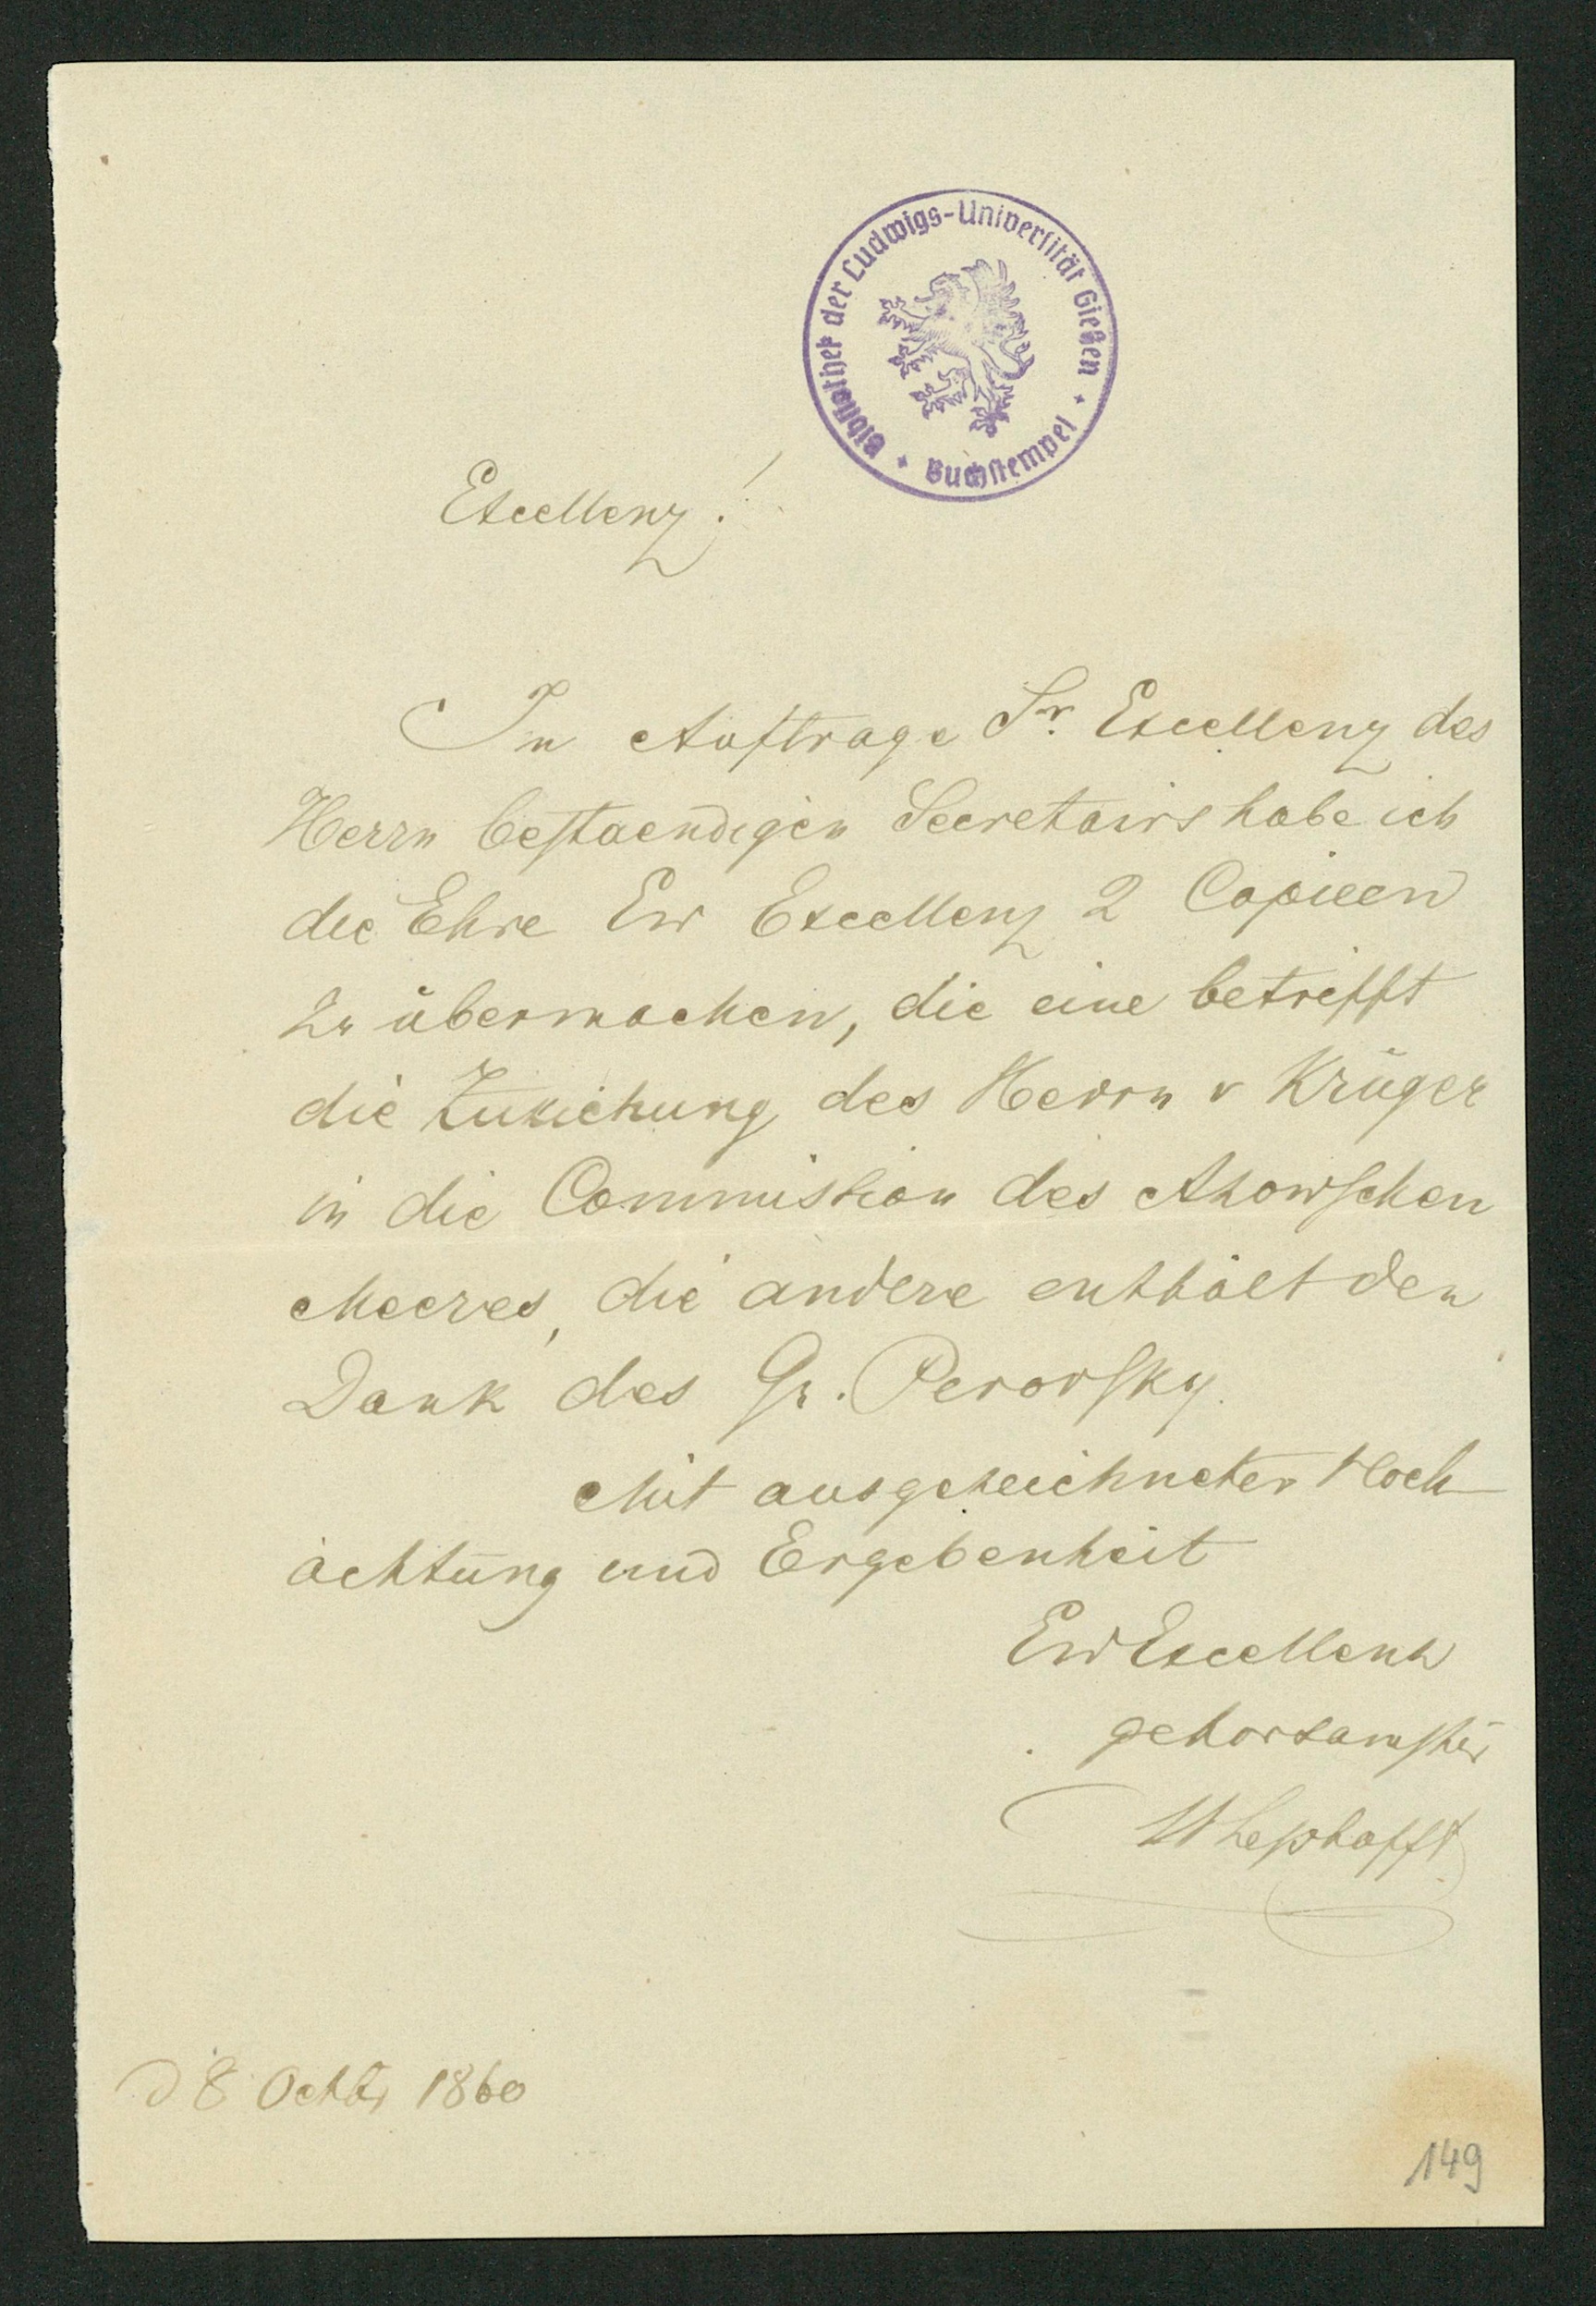 Bibliothek der Ludwigs-Universität Gießen + Buchstempel +
Excellenz!
In Auftrage Sr. Excellenz des
Herrn bestaendigen Secretairs habe ich
die Ehre Ew Excellenz 2 Copieen
zu übermachen, die eine betrifft
die Zuziehung des Herrn v Krüger
in die Commission des Asowschen
Meeres, die andere enthält den
Dank des Gr. Perovsky.
Mit ausgezeichneter Hoch
achtung und Ergebenheit
Ew Excellenz
gehorsamster
d 8 Octbr 1860
149